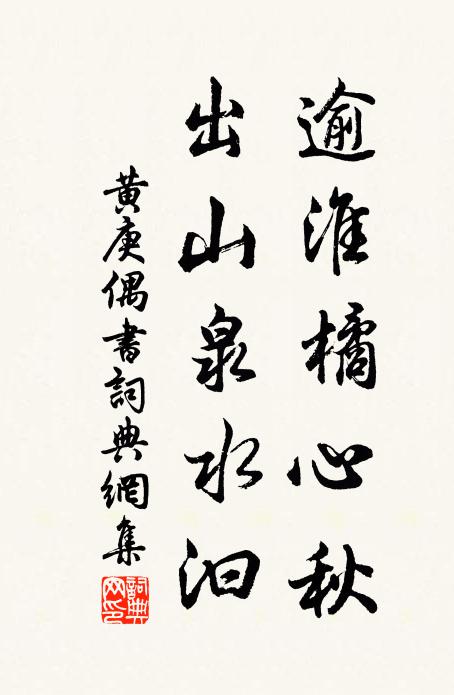 逾淮橘心秋
出山泉水汩
黄庚偶書詞典網集
詞典
网印